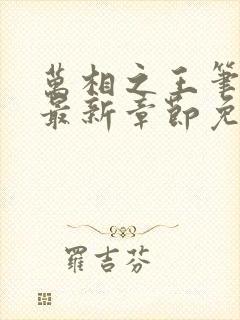 萬相之王筆
最新章節免
羅吉芬